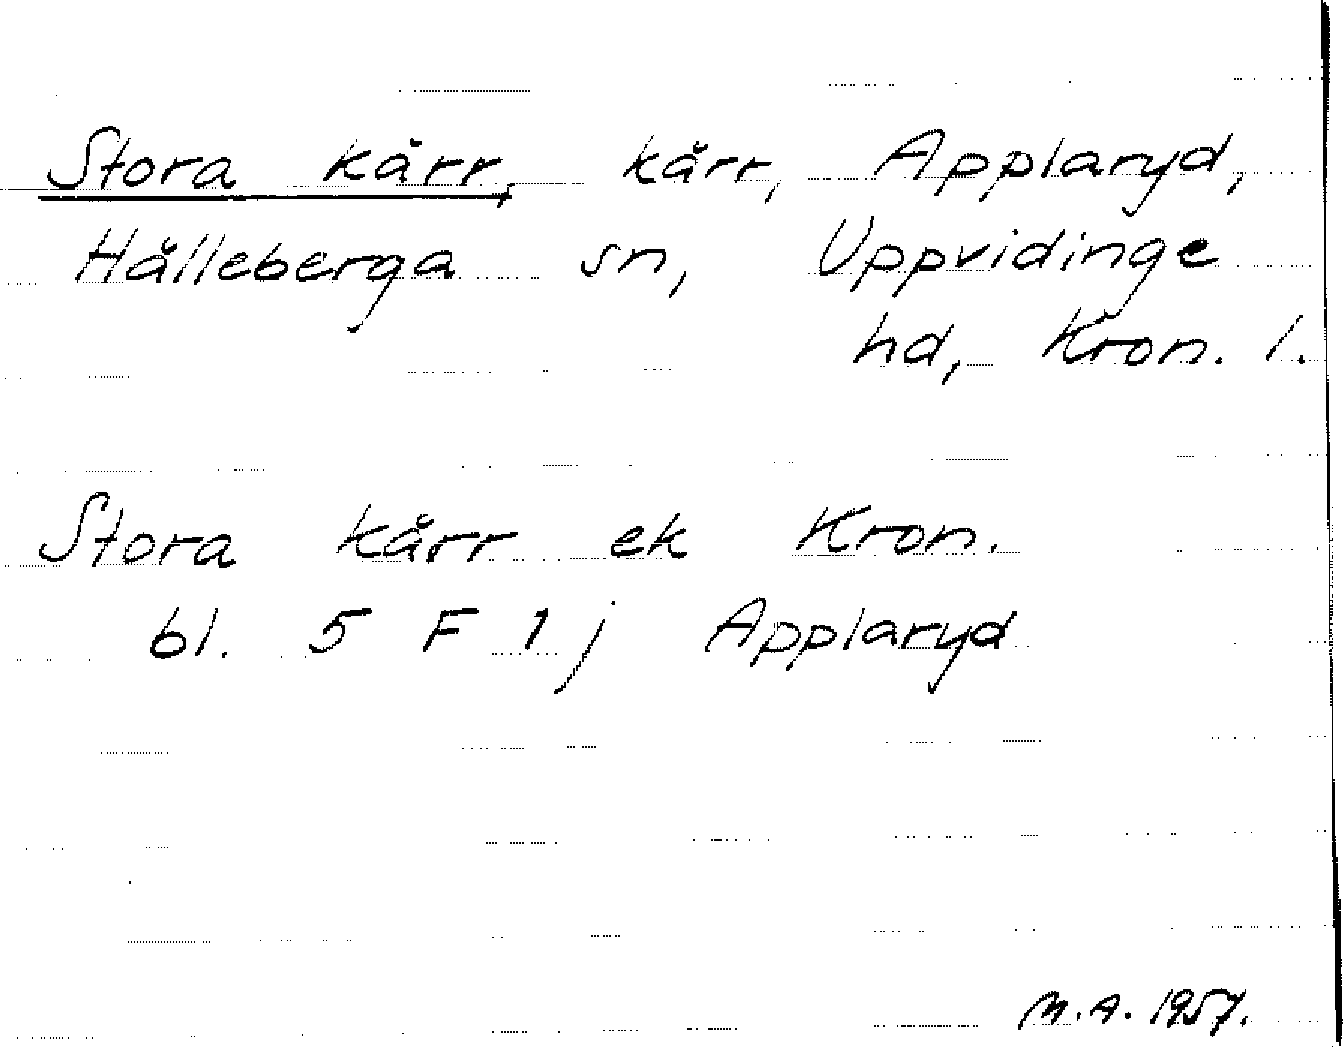 Stora kärr, kärr, Applaryd,
Hälleberga sn, Uppvidinge
hd, Kron. l.
Stora kärr ek Kron.
bl. 5 F 1 j Applaryd
M.A. 1957.